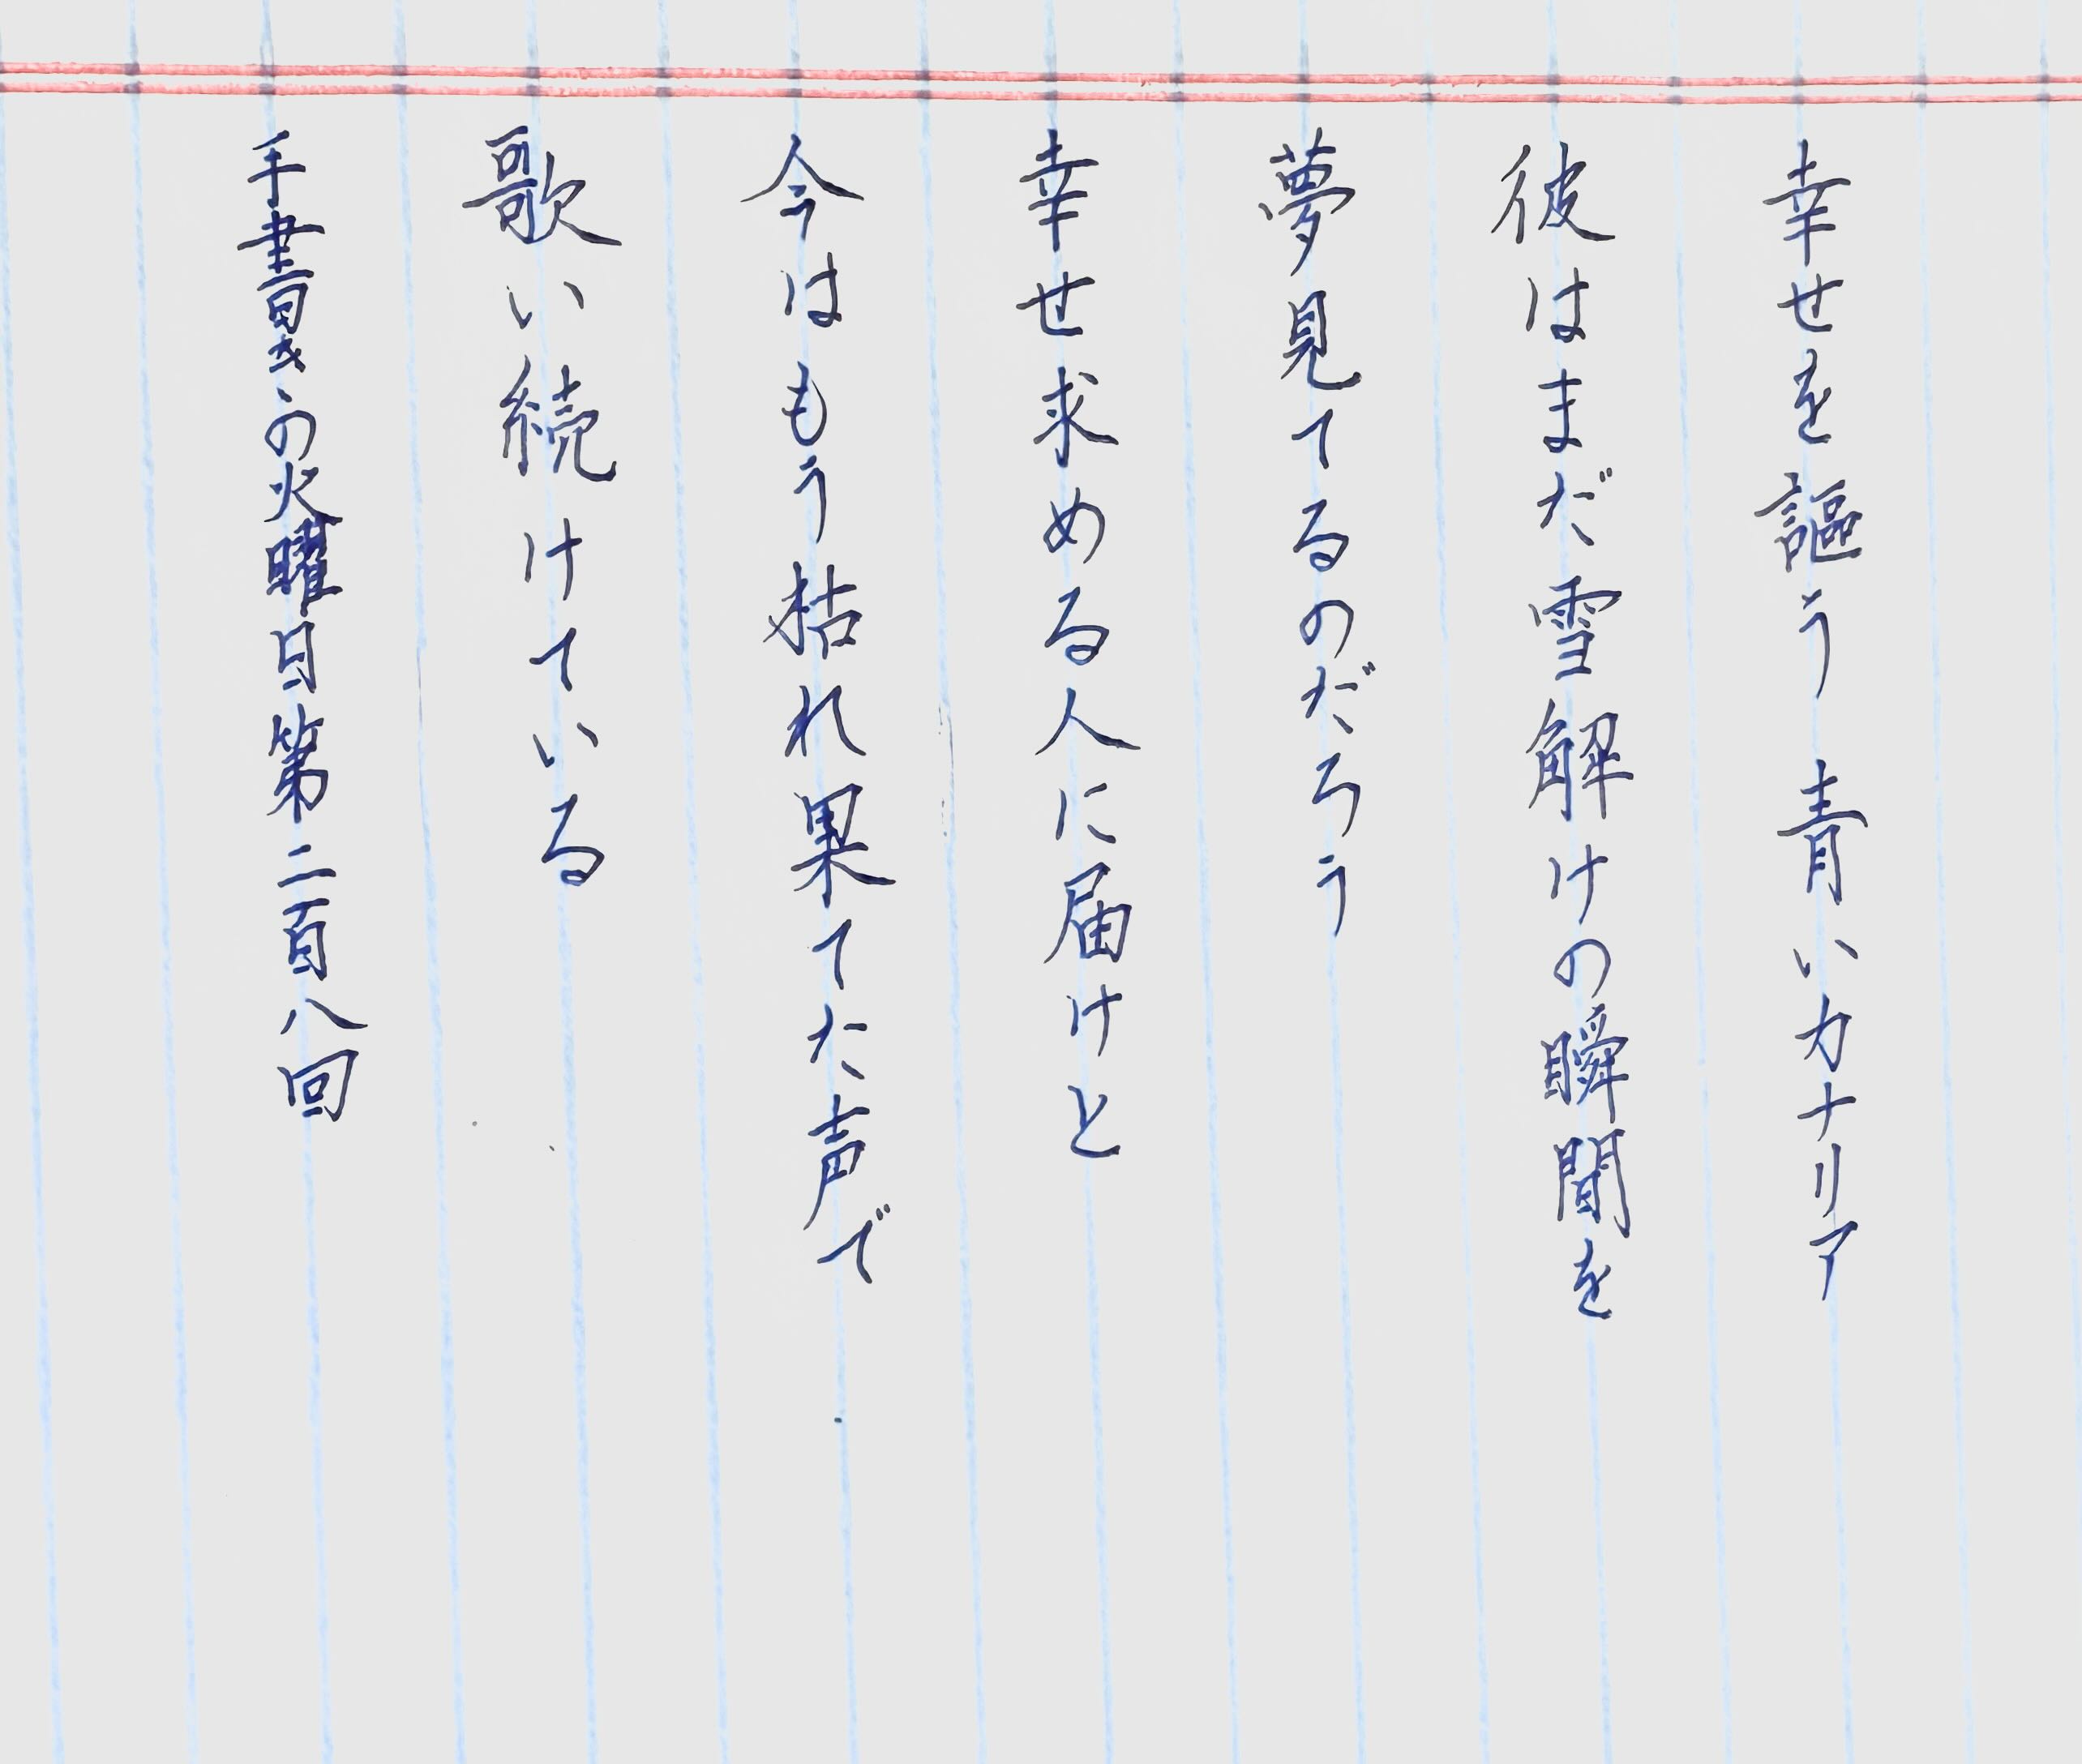 幸せを謳う　青いカナリア
彼はまだ雪解けの瞬間を
夢見てるのだろう
幸せ求める人に届けと
今はもう枯れ果てた声で
歌い続けている
手書きの火曜日第二百八回